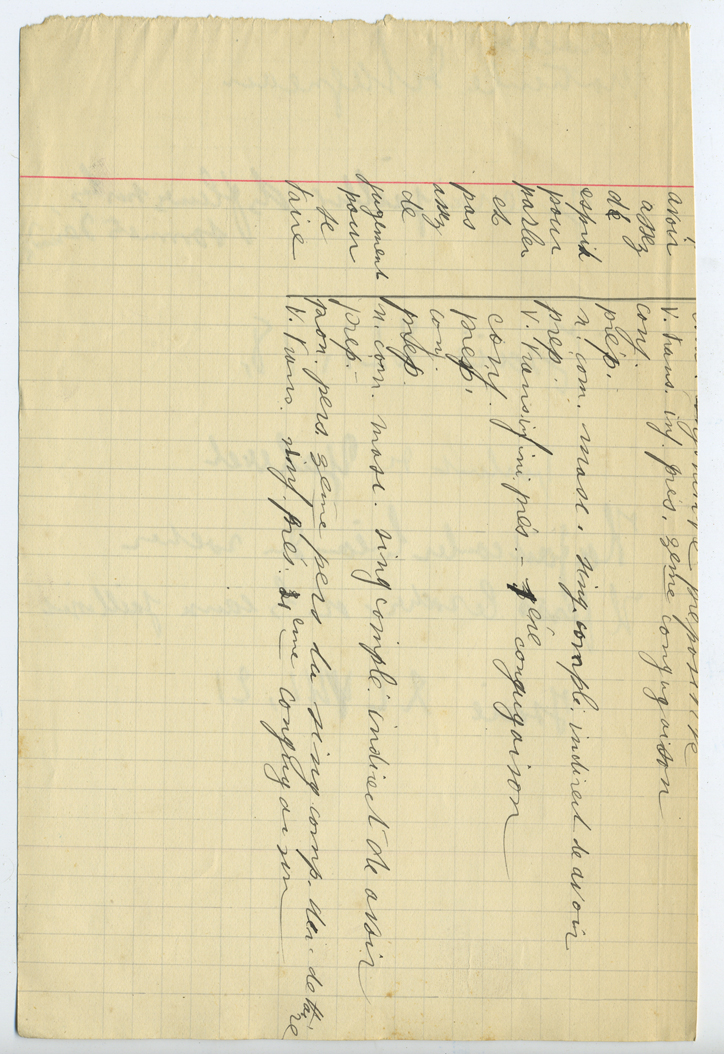 avoir v. trans. inf. prés. 3ème conjugaison
assez conj.
de prép.
esprit n. com. masc. sing. complé. indirect de avoir
pour prép.
parler v. trans. infini. prés. - 1ère conjugaison
et conj.
pas prép.
assez conj.
de prép.
jugement n. com. masc. sing complé. indirect de avoir
pour prép.
se pron. pers. 3ème pers du sing comp. dir. de taire
taire v. trans. inf. prés. 4ème conjugaison